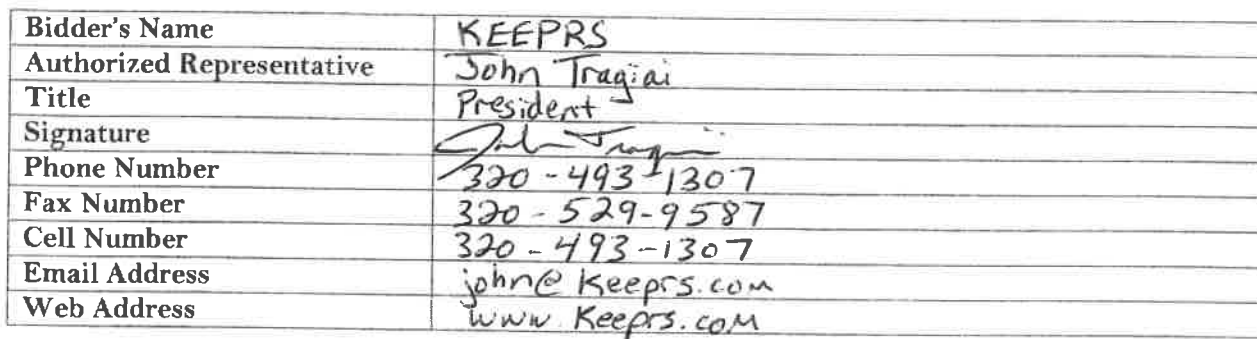 Bidder's Name KEEPRS
Authorized Representative John Tragiai
Title President
Signature John Tragiai
Phone Number 320-493-1307
Fax Number 320-529-9587
Cell Number 320-493-1307
Email Address john@Keeprs.com
Web Address www.Keeprs.com